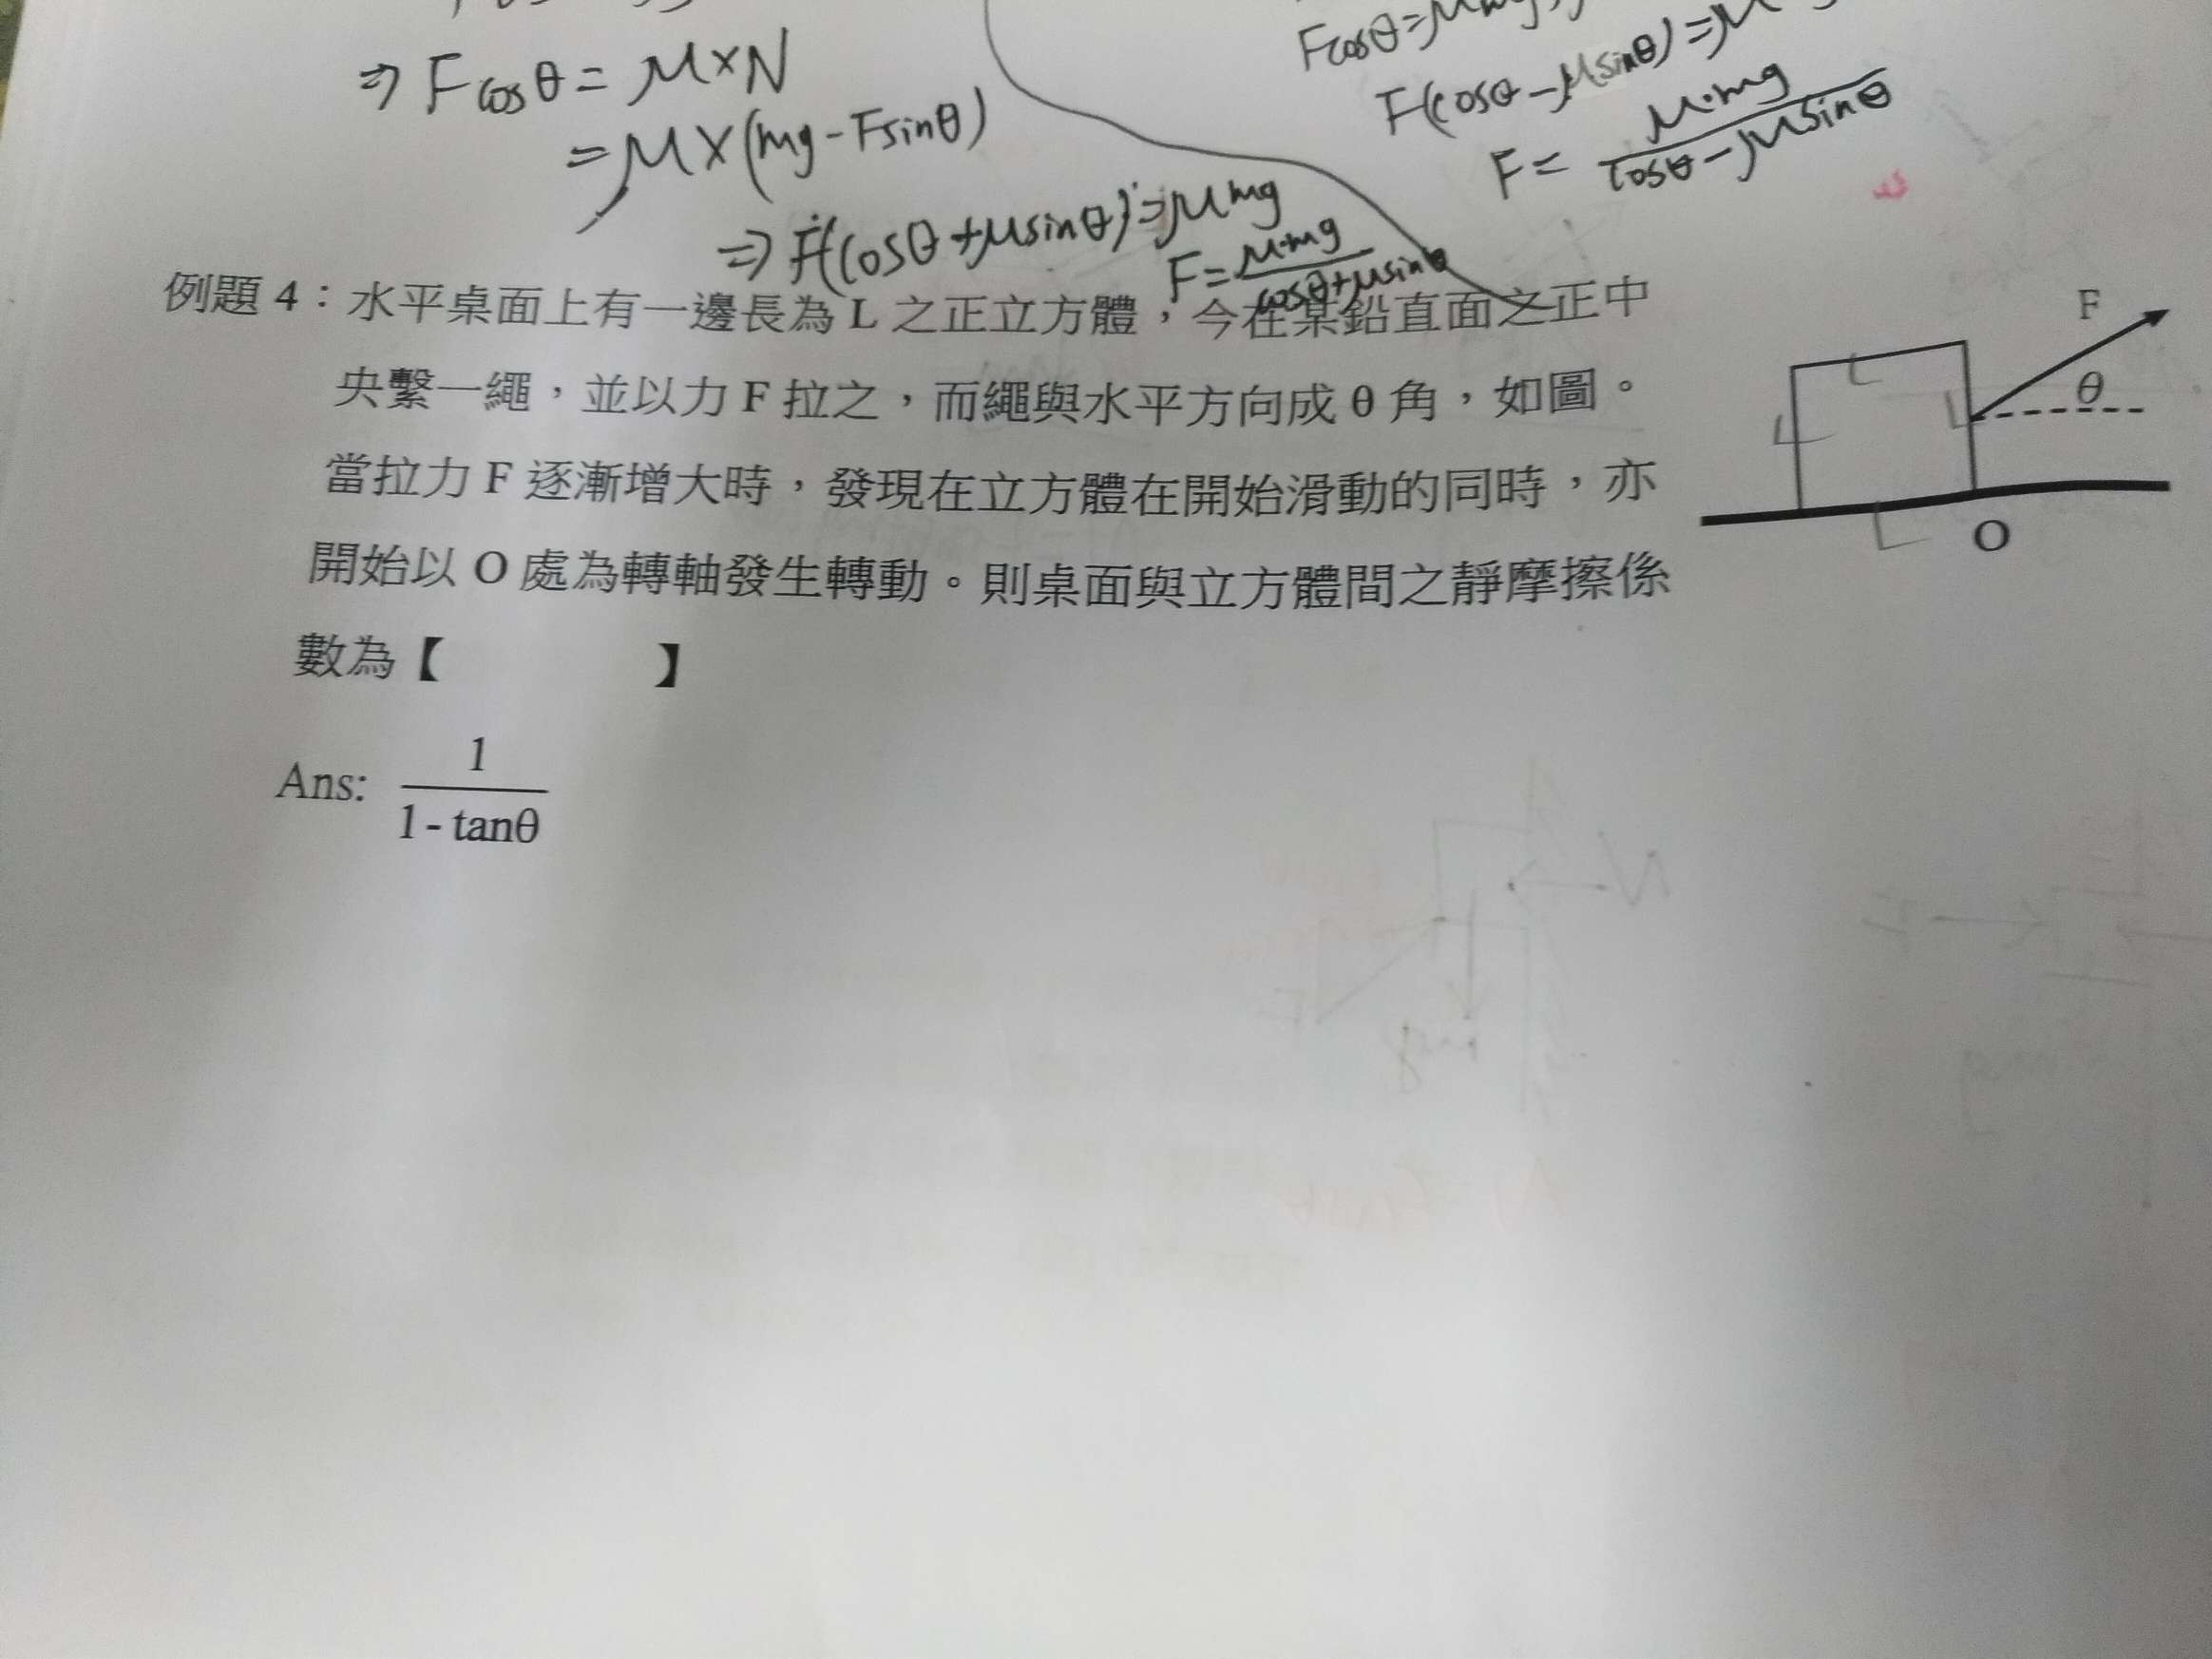 ⇒ Fcosθ = μ×N
= μ×(mg-Fsinθ)
⇒ F(cosθ+μsinθ)=μmg
F = μ·mg / cosθ+μsinθ
F(cosθ-μsinθ)=μ
F = μ·mg / cosθ-μsinθ
例題 4：水平桌面上有一邊長為 L 之正立方體，今在某鉛直面之正中
央繫一繩，並以力 F 拉之，而繩與水平方向成 θ 角，如圖。
當拉力 F 逐漸增大時，發現在立方體在開始滑動的同時，亦
開始以 O 處為轉軸發生轉動。則桌面與立方體間之靜摩擦係
數為【 】
F
θ
L
L
L
L
O
Ans: 1 / 1-tanθ